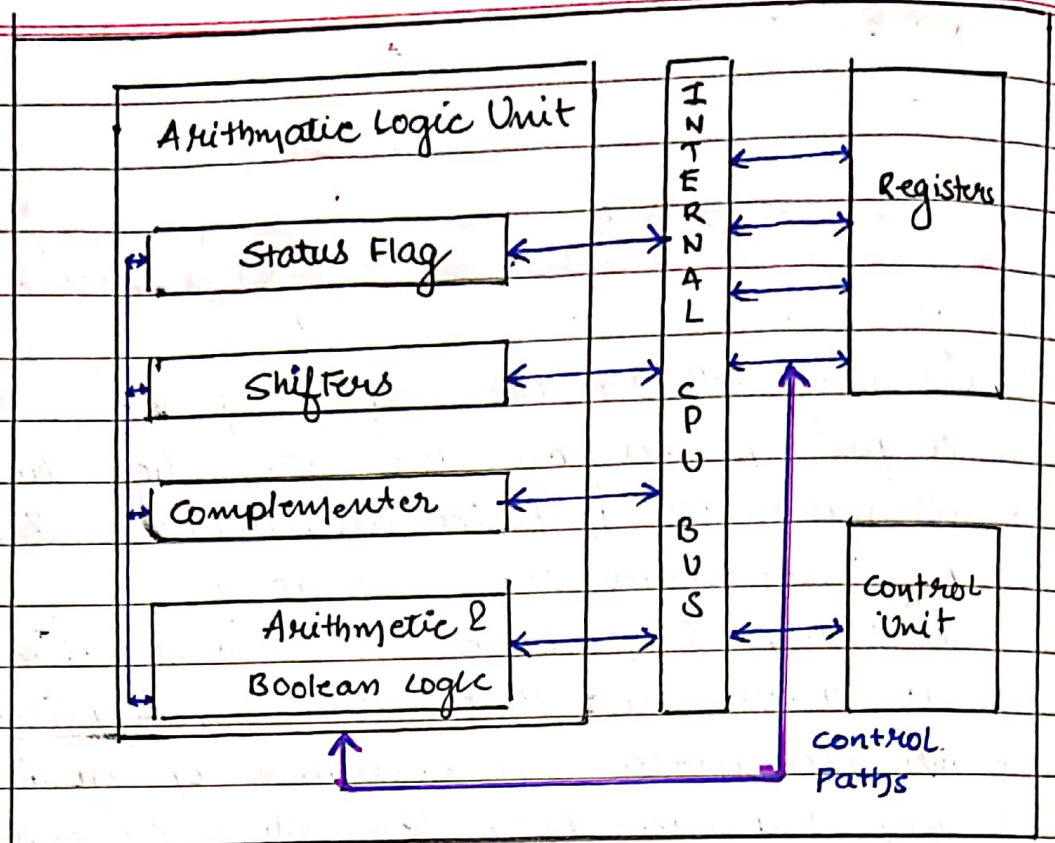 Arithmatic Logic Unit
Status Flag
Shifters
Complementer
Arithmetic &
Boolean Logic
INTERNAL CPU BUS
Registers
Control
Unit
Control
Paths